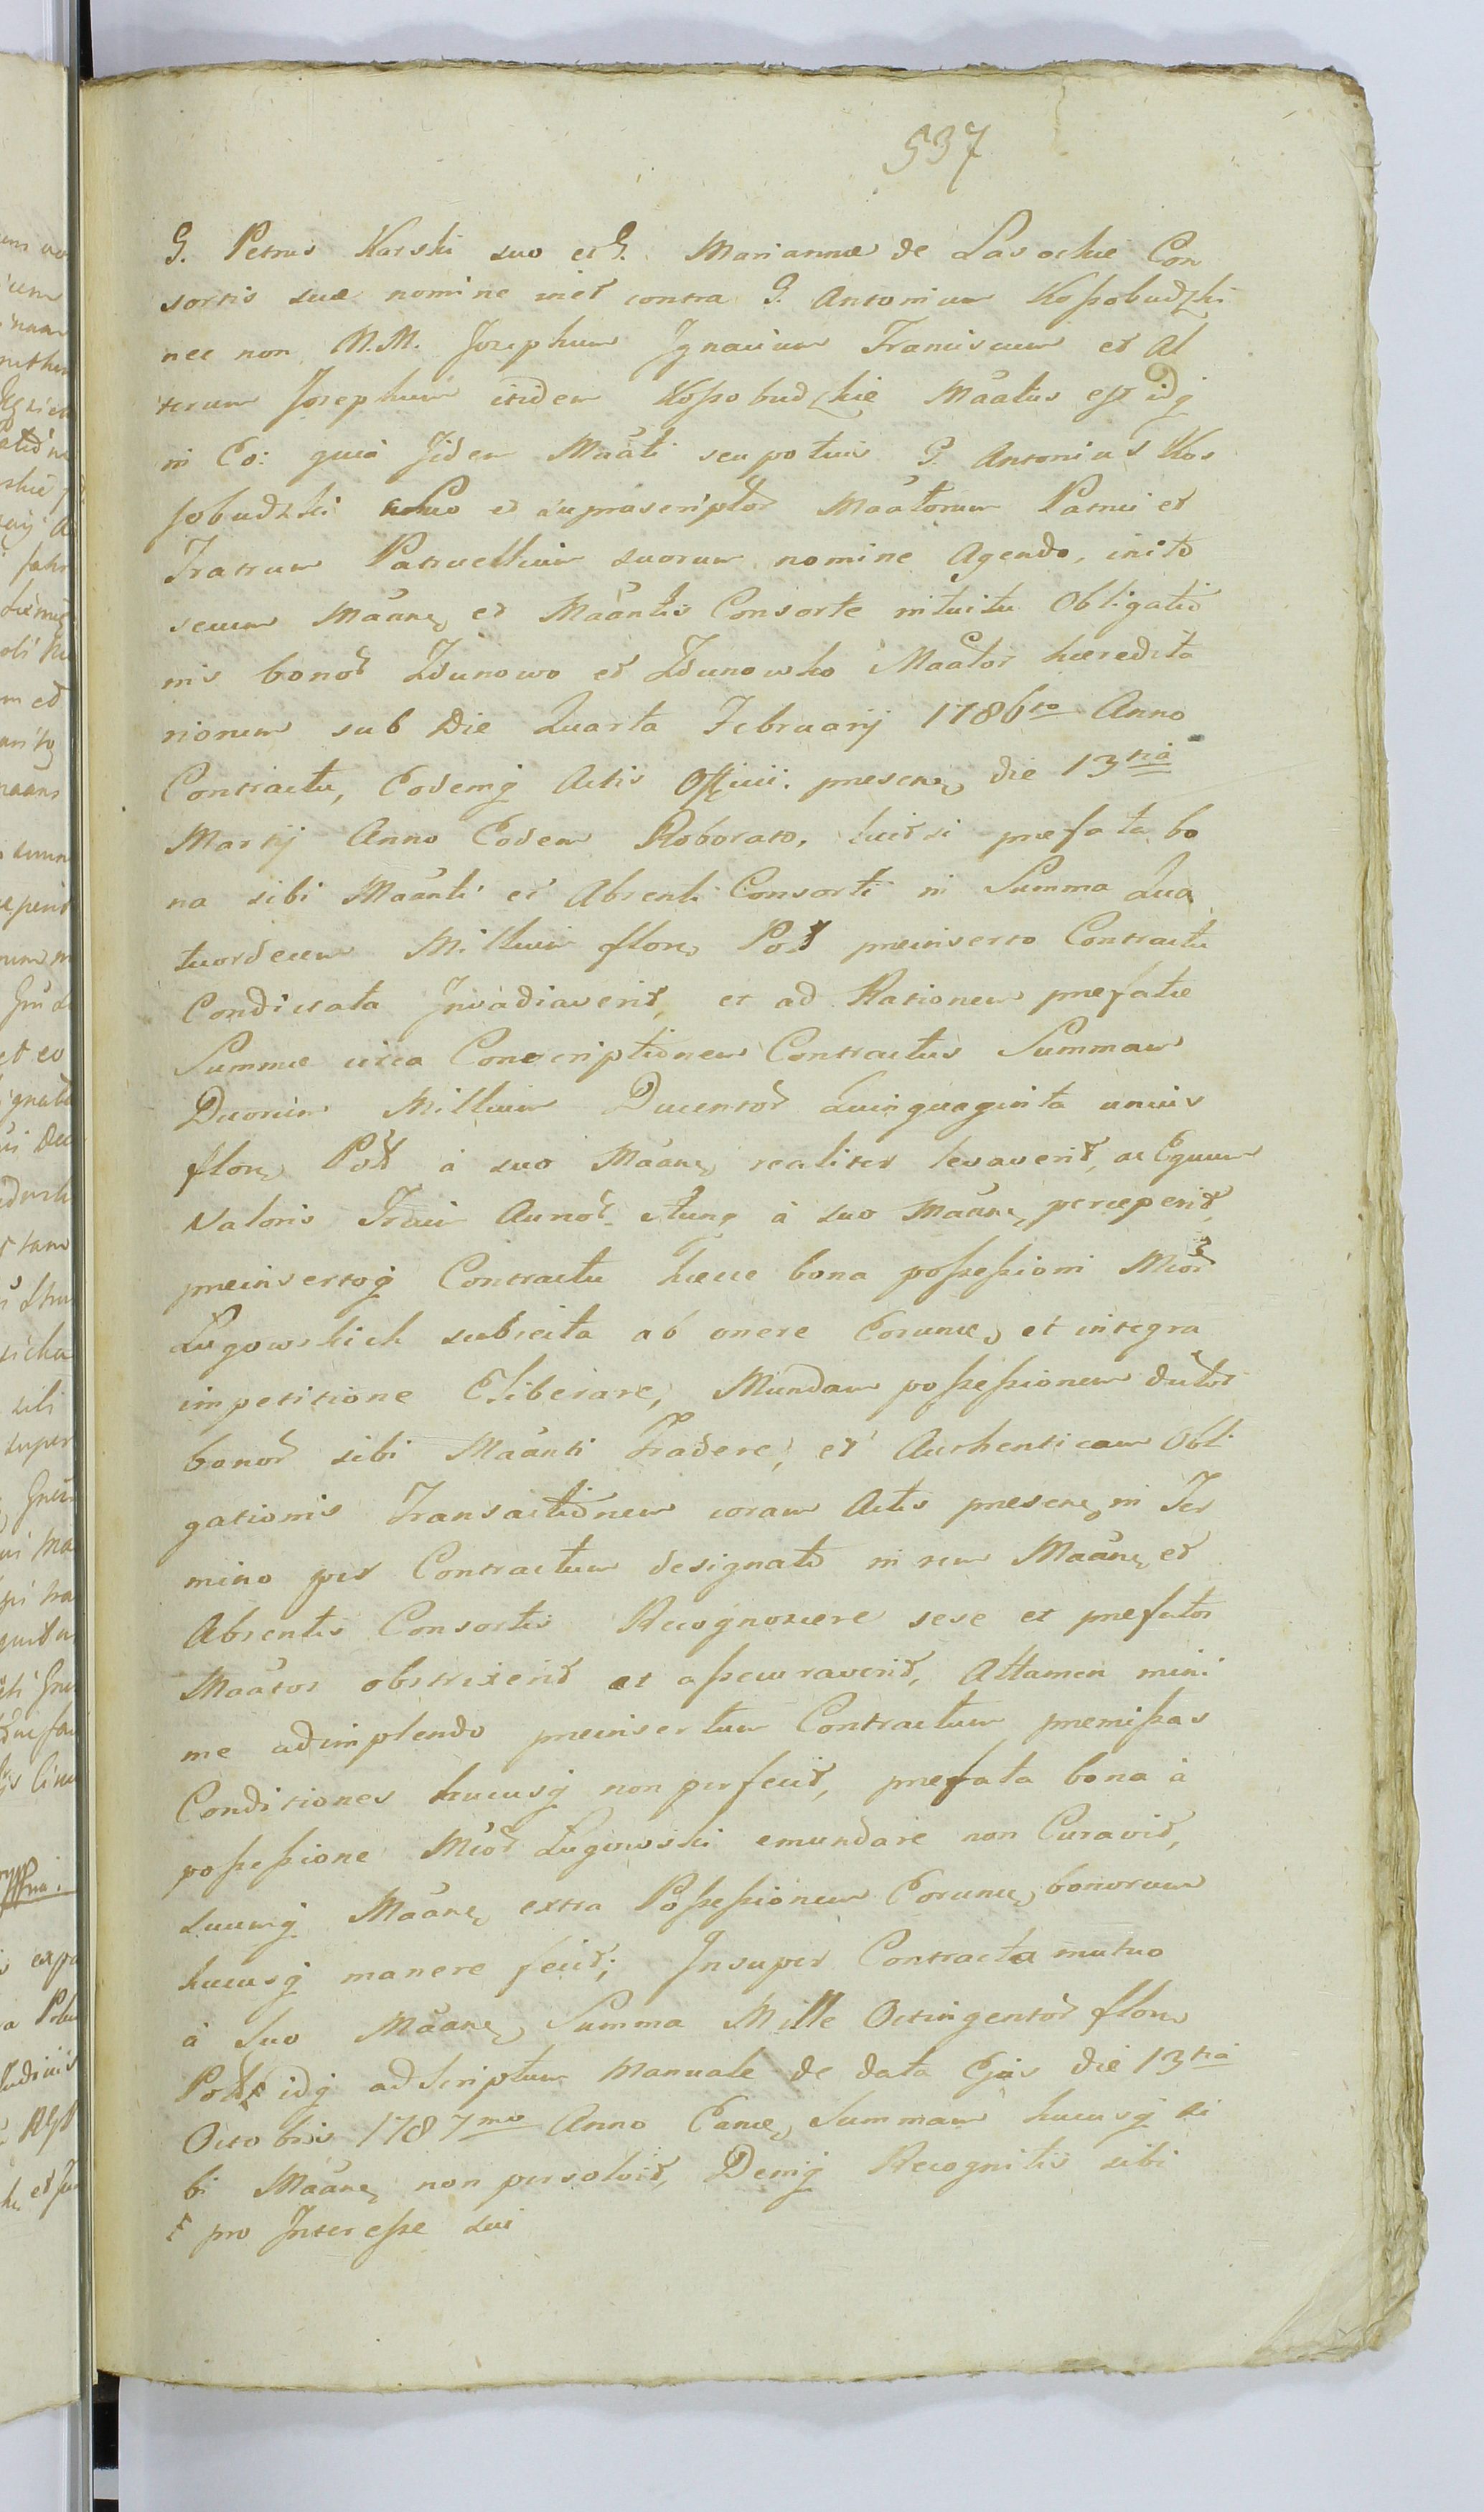 537
G. Petrus Karski suo et G. Mariannæ de Lasockie Con
sortis suæ nomine inet contra G. Antonium Kossobudzki
nec non M.M. Josephum Ignacium Franciscum et Al
terum Josephum itidem Kossobudzkie Maatus est idq
in Eo: quia Jidem Maati seu potius G. Antonius Kos
sobudzki suo et supra scriptor Maatorum Patrui et
Fratrum Patruellium suorum nomine Agendo, inito
secum Maane et Maantis Consorte intuitu Obligatio
nis bonor Zdunowo et Zdunowko Maator hæredita
riorum sub Die Quarta Februarij 1786to Anno
Contractu, Eodemq Actis Officii. præsen, die 13tia
Martij Anno Eodem Roborato, licet si præfata bo
na sibi Maanti et Absenti Consorti in Summa Qua
tuordecem Millium flor Pol præinserto Contractu
Condictata Invadiaverit, et ad Rationem præfatæ
Summæ circa Conscriptionem Contractus Summam
Duorum Millium Ducentor Quinquaginta unius
flor Pol à suo Maane realiter levaverit, ac Equum
Valoris Trium Aunor à suo Maane perceperit,
præinsertoq Contractu hæcce bona possessioni Mior
Lugowskich subiecta ab onere Eorunce, et integra
impetitione Eliberare, Mundam possessionem dictor
bonor sibi Maanti Tradere, et Authenticam Obli
gationis Transactionem coram Actis præsen in Ter
mino per Contractum designato in rem Maane et
Absentis Consortis Recognoscere sese et præfator
Maatos obstrixerit et assecuraverit, Attamen mini
me adimplendo præinsertum Contractum præmissas
Conditiones hucusq non perfecit, præfata bona à
possessione Mior Lugowski emundare non Curavit,
suumq Maane extra Possessionem Eorunce bonorum
hucusq manere fecit; Insuper Contracta mutuo
à Suo Maane Summa Mille Octingentor flor
Pol idq ad Scriptum Manuale de data Ejus die 13tia
Octobris 1787mo Anno Eance Summam hucusq si
bi Maane non persolvit, Deniq Recognitis sibi
pro Interesse sui